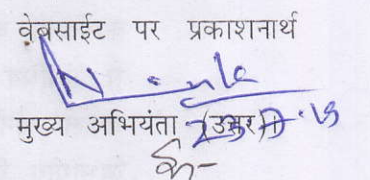 वेबसाईट पर प्रकाशनार्थ
मुख्य अभियंता (उत्तर)।